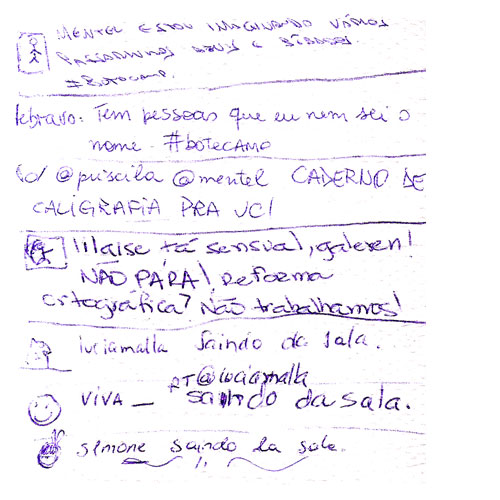 MENTEL ESTOU IMAGINANDO VÁRIOS
PASSARINHOS AZUIS E BÊBADOS.
#BOTECAMP.
lebravo: Tem pessoas que eu nem sei o
nome. #botecamp
@priscila @mentel CADERNO DE
CALIGRAFIA PRA VC!
lilaise tá sensual, galeren!
NÃO PÁRA! Reforma
ortográfica? Não trabalhamos!
luciamalla Saindo da sala.
RT@luciamalla
VIVA _ saindo da sala.
simone saindo da sala.